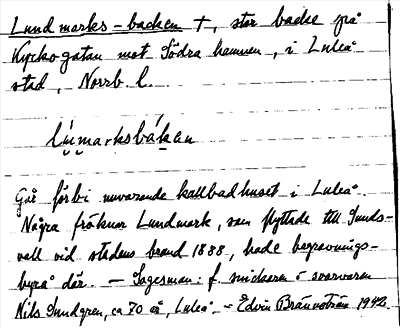 Lundmarks-backen †, stor backe på
Kyrkogatan mot Södra hamnen, i Luleå
stad, Norrb. l.
Går förbi nuvarande kallbadhuset i Luleå.
Några fröknar Lundmark, som flyttade till Sunds-
vall vid stadens brand 1888, hade begravnings-
byrå där. — Sagesman: f. snickaren o svarvaren
Nils Sundgren, ca 70 år, Luleå. - Edvin Brännström 1942.